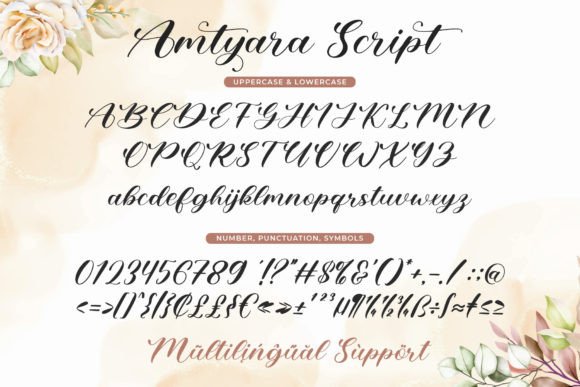 Amtyara Script
UPPERCASE & LOWERCASE
ABCDEFGHIJKLMN
OPQRSTUVWXYZ
abcdefghijklmnopqrstuvwxyz
NUMBER, PUNCTUATION, SYMBOLS
0123456789 !?"#$%&'()*+,-./:;@
Mūltilįńğüäl Sùppört